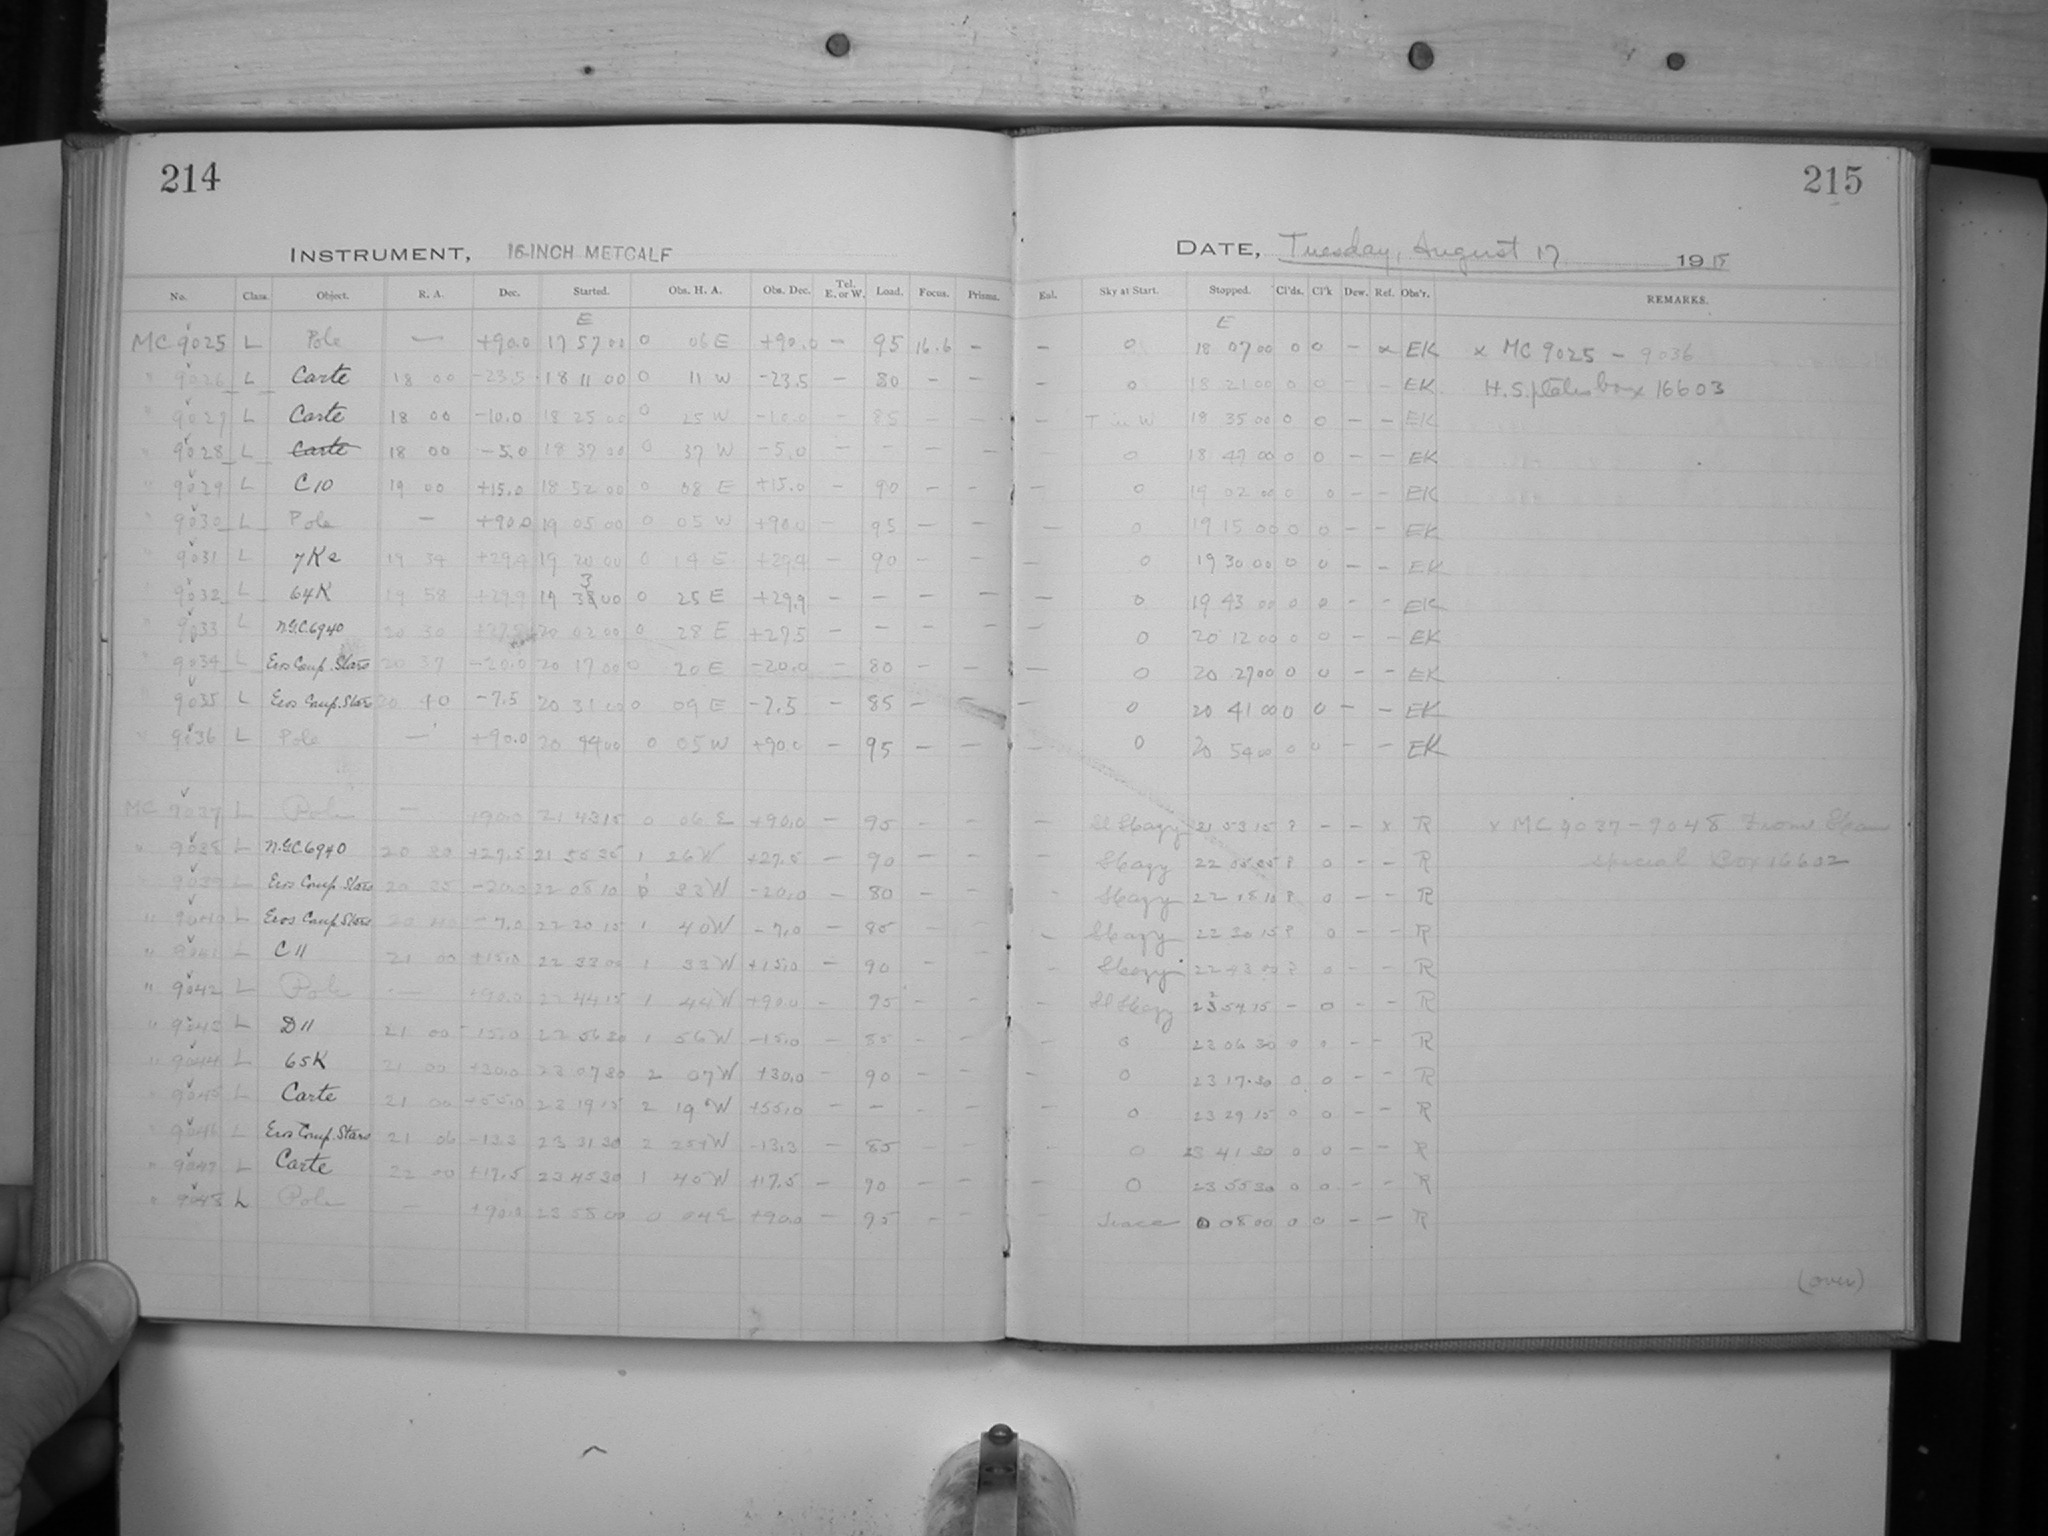 214
INSTRUMENT, 16-INCH METCALF
No. Class. Object. R. A. Dec. Started. Obs. H. A. Obs. Dec. Tel. E. or W. Load. Focus. Prisms.
E
MC 9025 L Pole — +90.0 17 57 00 0 06 E +90.0 — 95 16.6 —
" 9026 L Carte 18 00 -23.5 18 11 00 0 11 W -23.5 — 80 — —
" 9027 L Carte 18 00 -10.0 18 25 00 0 25 W -10.0 — 85 — —
" 9028 L Carte 18 00 -5.0 18 37 00 0 37 W -5.0 — — — —
" 9029 L C10 19 00 +15.0 18 52 00 0 08 E +15.0 — 90 — —
" 9030 L Pole — +90.0 19 05 00 0 05 W +90.0 — 95 — —
" 9031 L 19 34 +29.9 19 20 00 0 14 E +29.9 — 90 — —
" 9032 L 64K 19 58 +29.9 19 33 00 0 25 E +29.9 — — — —
" 9033 L N.G.C.6940 20 30 +27.5 20 02 00 0 28 E +27.5 — — — —
" 9034 L Eros Comp. Stars 20 37 -20.0 20 17 00 0 20 E -20.0 — 80 — —
" 9035 L Eros Comp. Stars 20 40 -7.5 20 31 00 0 09 E -7.5 — 85 — —
" 9036 L Pole — +90.0 20 44 00 0 05 W +90.0 — 95 — —
MC 9037 L Pole — +90.0 21 43 15 0 06 E +90.0 — 95 — —
" 9038 L N.G.C.6940 20 30 +27.5 21 55 35 1 26 W +27.5 — 90 — —
" 9039 L Eros Comp. Stars 20 35 -20.0 22 08 10 33 W -20.0 — 80 — —
" 9040 L Eros Comp. Stars 20 40 -7.0 22 20 15 1 40 W -7.0 — 85 — —
" 9041 L C11 21 00 +15.0 22 33 00 1 33 W +15.0 — 90 — —
" 9042 L Pole — +90.0 22 44 15 1 44 W +90.0 — 95 — —
" 9043 L D11 21 00 -15.0 22 56 30 1 56 W -15.0 — 85 — —
" 9044 L 65K 21 00 +30.0 23 07 30 2 07 W +30.0 — 90 — —
" 9045 L Carte 21 00 +55.0 23 19 15 2 19 W +55.0 — — — —
" 9046 L Eros Comp. Stars 21 06 -13.3 23 31 30 2 W -13.3 — 85 — —
" 9047 L Carte 22 00 +17.5 23 45 30 1 45 W +17.5 — 90 — —
" 9048 L Pole — +90.0 23 58 00 0 04 E +90.0 — 95 — —
215
DATE, Tuesday, August 17 19 15
Enl. Sky at Start. Stopped. Cl'ds. Cl'k Dew. Ref. Obs'r. REMARKS.
E
— 0 18 07 00 0 0 — x EK x MC 9025 – 9036
— 0 18 21 00 0 0 — — EK H.S. plates box 16603
— T in W 18 35 00 0 0 — — EK
— 0 18 47 00 0 0 — — EK
— 0 19 02 00 0 0 — — EK
— 0 19 15 00 0 0 — — EK
— 0 19 30 00 0 0 — — EK
— 0 19 43 00 0 0 — — EK
— 0 20 12 00 0 0 — — EK
— 0 20 27 00 0 0 — — EK
— 0 20 41 00 0 0 — — EK
— 0 20 54 00 0 0 — — EK
— Sl Hazy 21 53 15 ? — — x R x MC 9037 – 9048 From
— Hazy 22 05 35 ? 0 — — R special Box 16602
— Hazy 22 18 10 ? 0 — — R
— Hazy 22 30 15 ? 0 — — R
— Hazy 22 43 00 ? 0 — — R
— Sl Hazy 22 54 15 — 0 — — R
— 0 23 06 30 0 0 — — R
— 0 23 17 30 0 0 — — R
— 0 23 29 15 0 0 — — R
— 0 23 41 30 0 0 — — R
— 0 23 55 30 0 0 — — R
— Trace 0 08 00 0 0 — — R
(over)